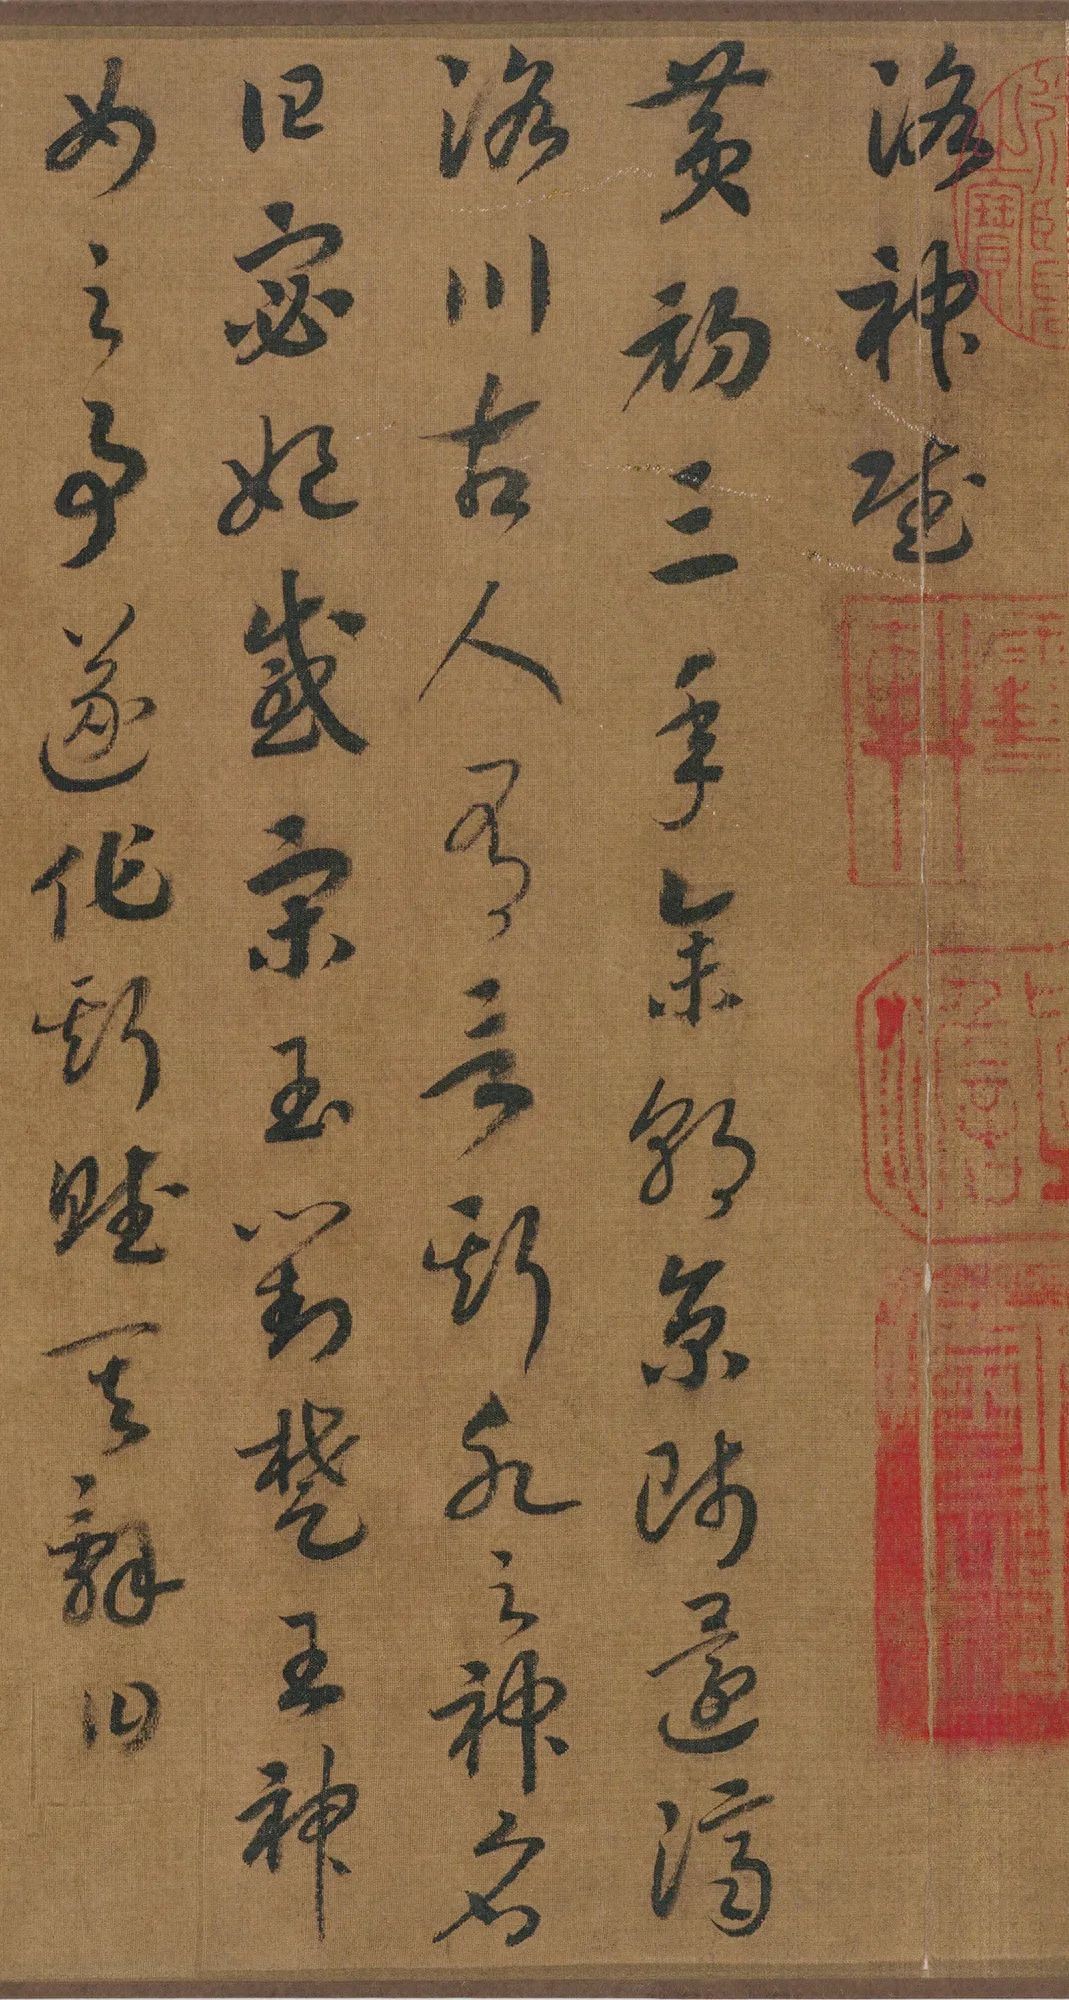 洛神賦
黃初三年余朝京師還濟
洛川古人有言斯水之神名
曰宓妃感宋玉對楚王神
女之事遂作斯賦其辭曰